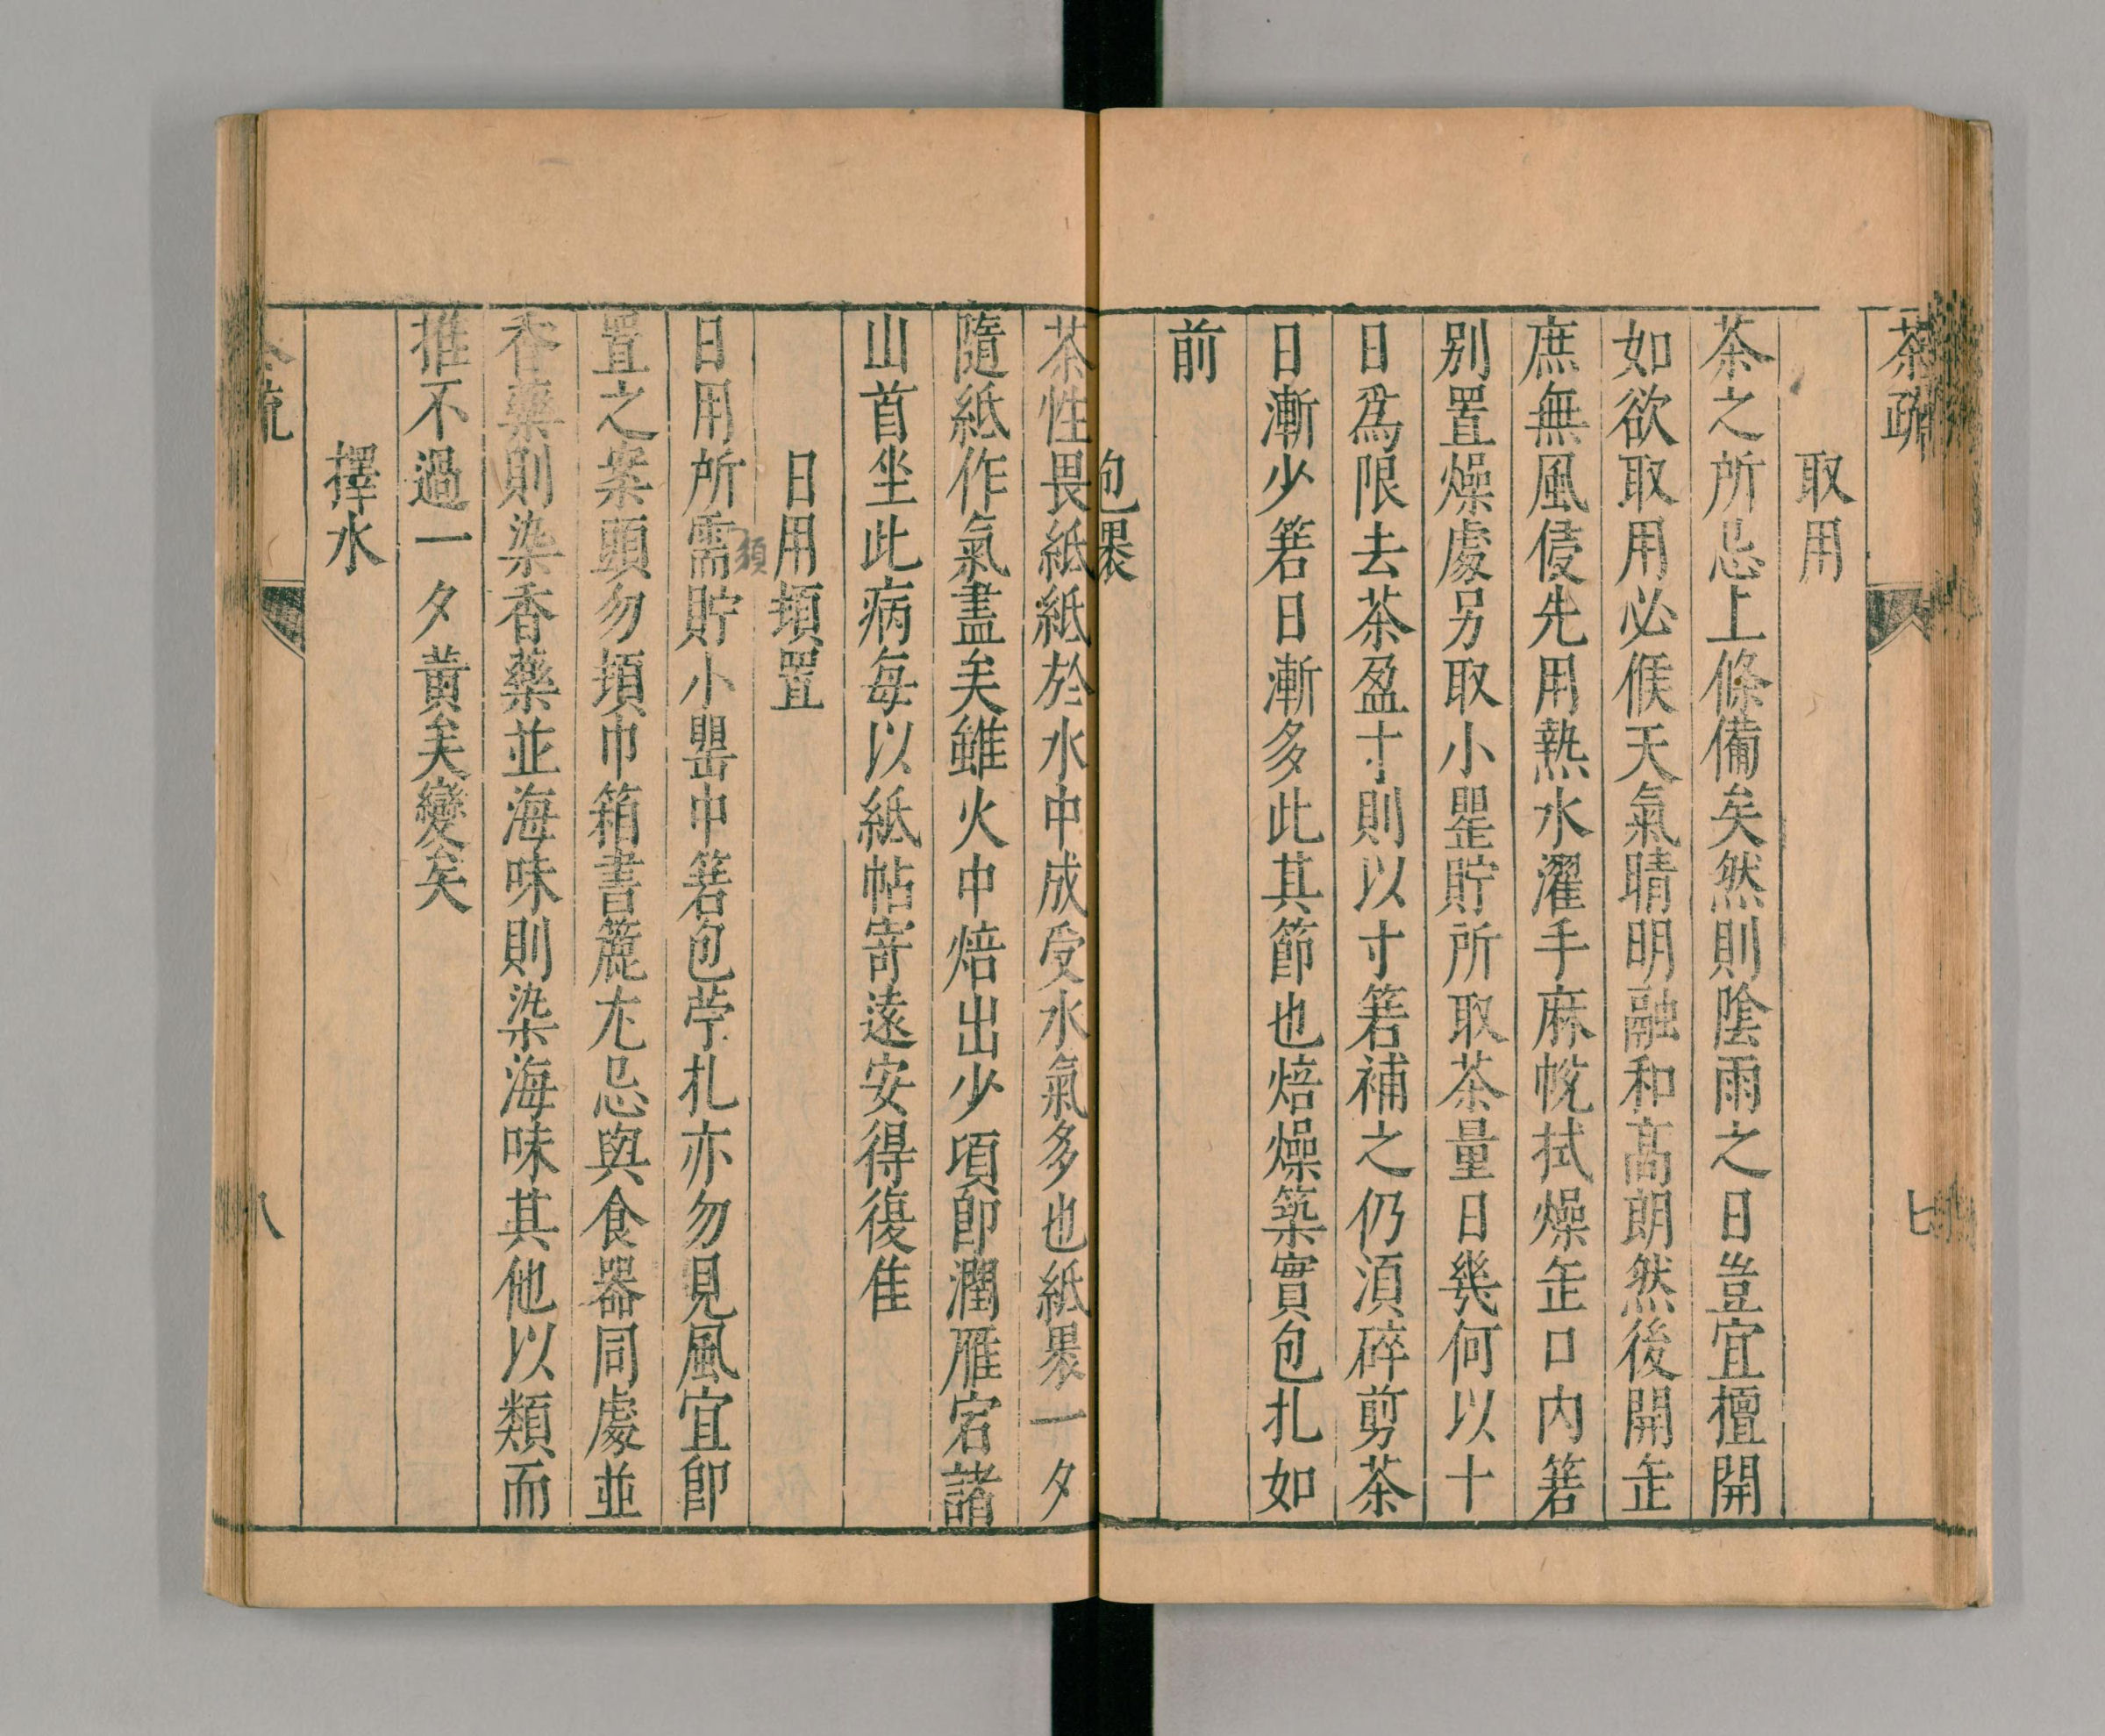 茶疏
七
取用
茶之所忌上條備矣然則陰雨之日豈宜擅開
如欲取用必候天氣晴明融和高朗然後開缶
庶無風侵先用熱水濯手麻帨拭燥缶口內箬
別置燥處另取小罌貯所取茶量日幾何以十
日爲限去茶盈寸則以寸箬補之仍須碎剪茶
日漸少箬日漸多此其節也焙燥築實包扎如
前
包裹
茶性畏紙紙於水中成受水氣多也紙裹一夕
隨紙作氣盡矣雖火中焙出少頃卽潤雁宕諸
山首坐此病每以紙帖寄遠安得復佳
日用頓置
日用所需貯小罌中箬包苧扎亦勿見風宜卽
須
置之案頭勿頓巾箱書簏尤忌與食器同處並
香藥則染香藥並海味則染海味其他以類而
推不過一夕黃矣變矣
擇水
茶疏
八